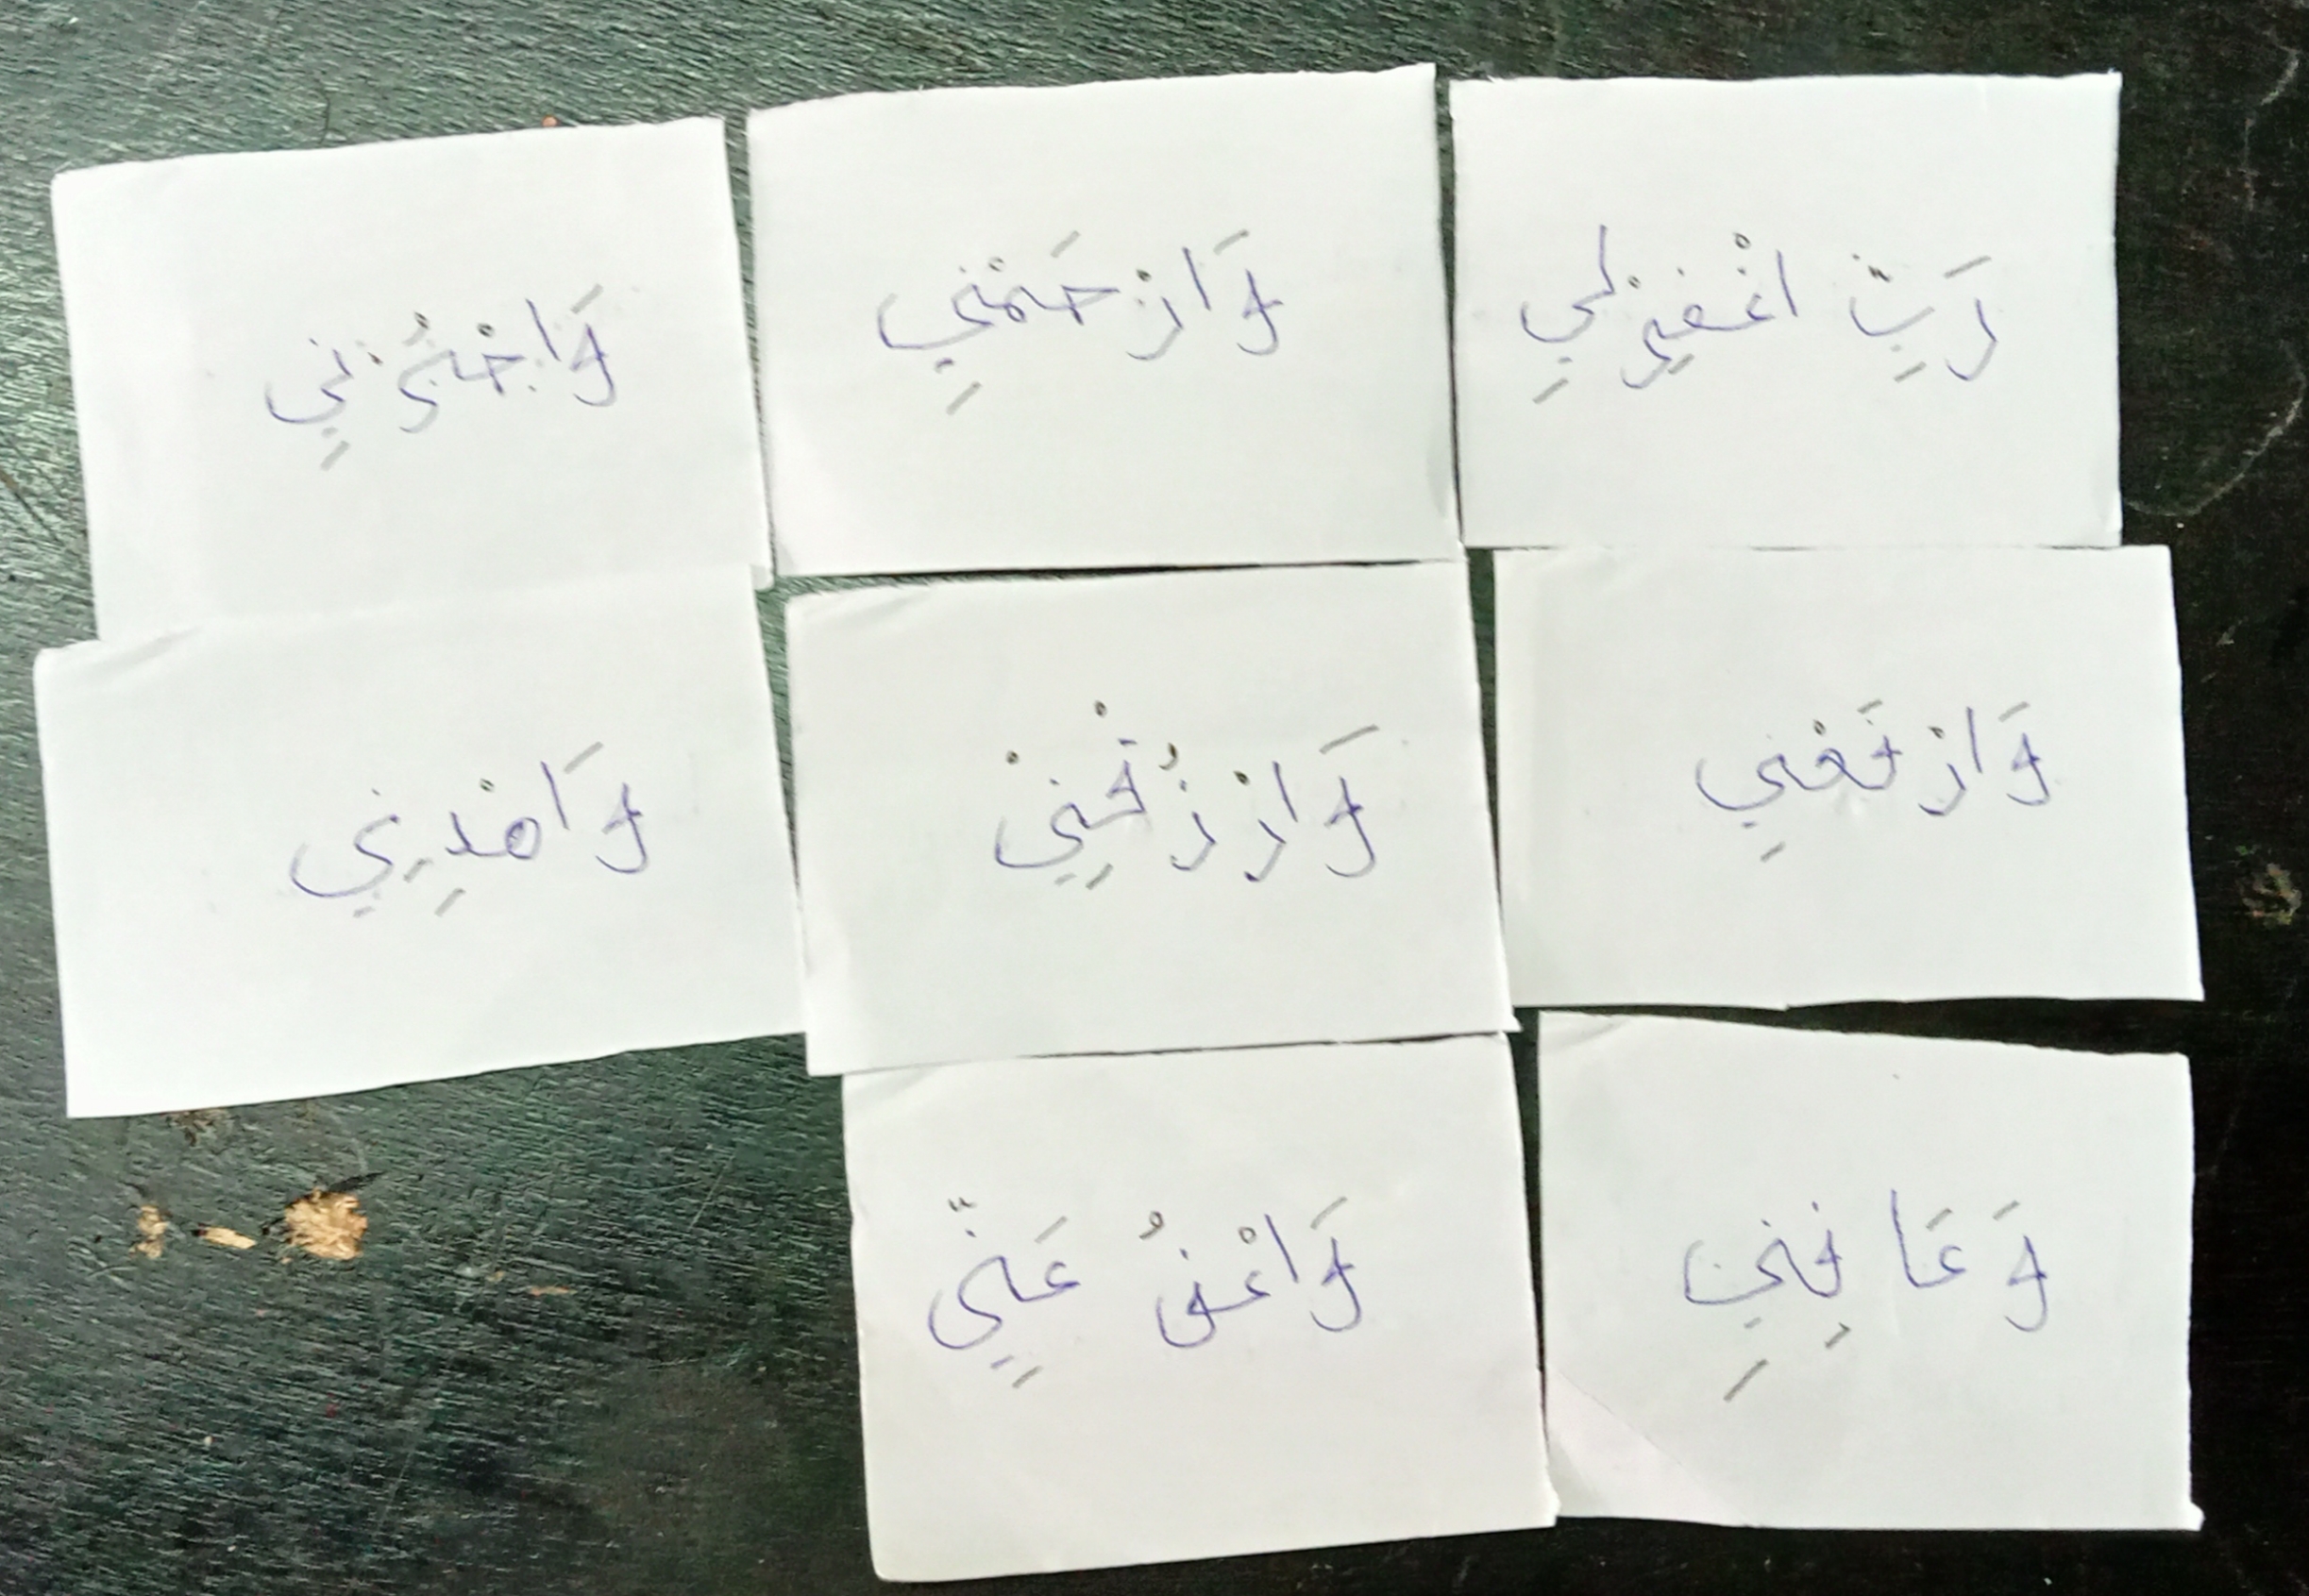 رَبِّ اغْفِرْلِي
وَارْحَمْنِي
وَاجْبُرْنِي
وَارْفَعْنِي
وَارْزُقْنِيْ
وَاهْدِنِي
وَعَا فِنِي
وَاعْفُ عَنِّي